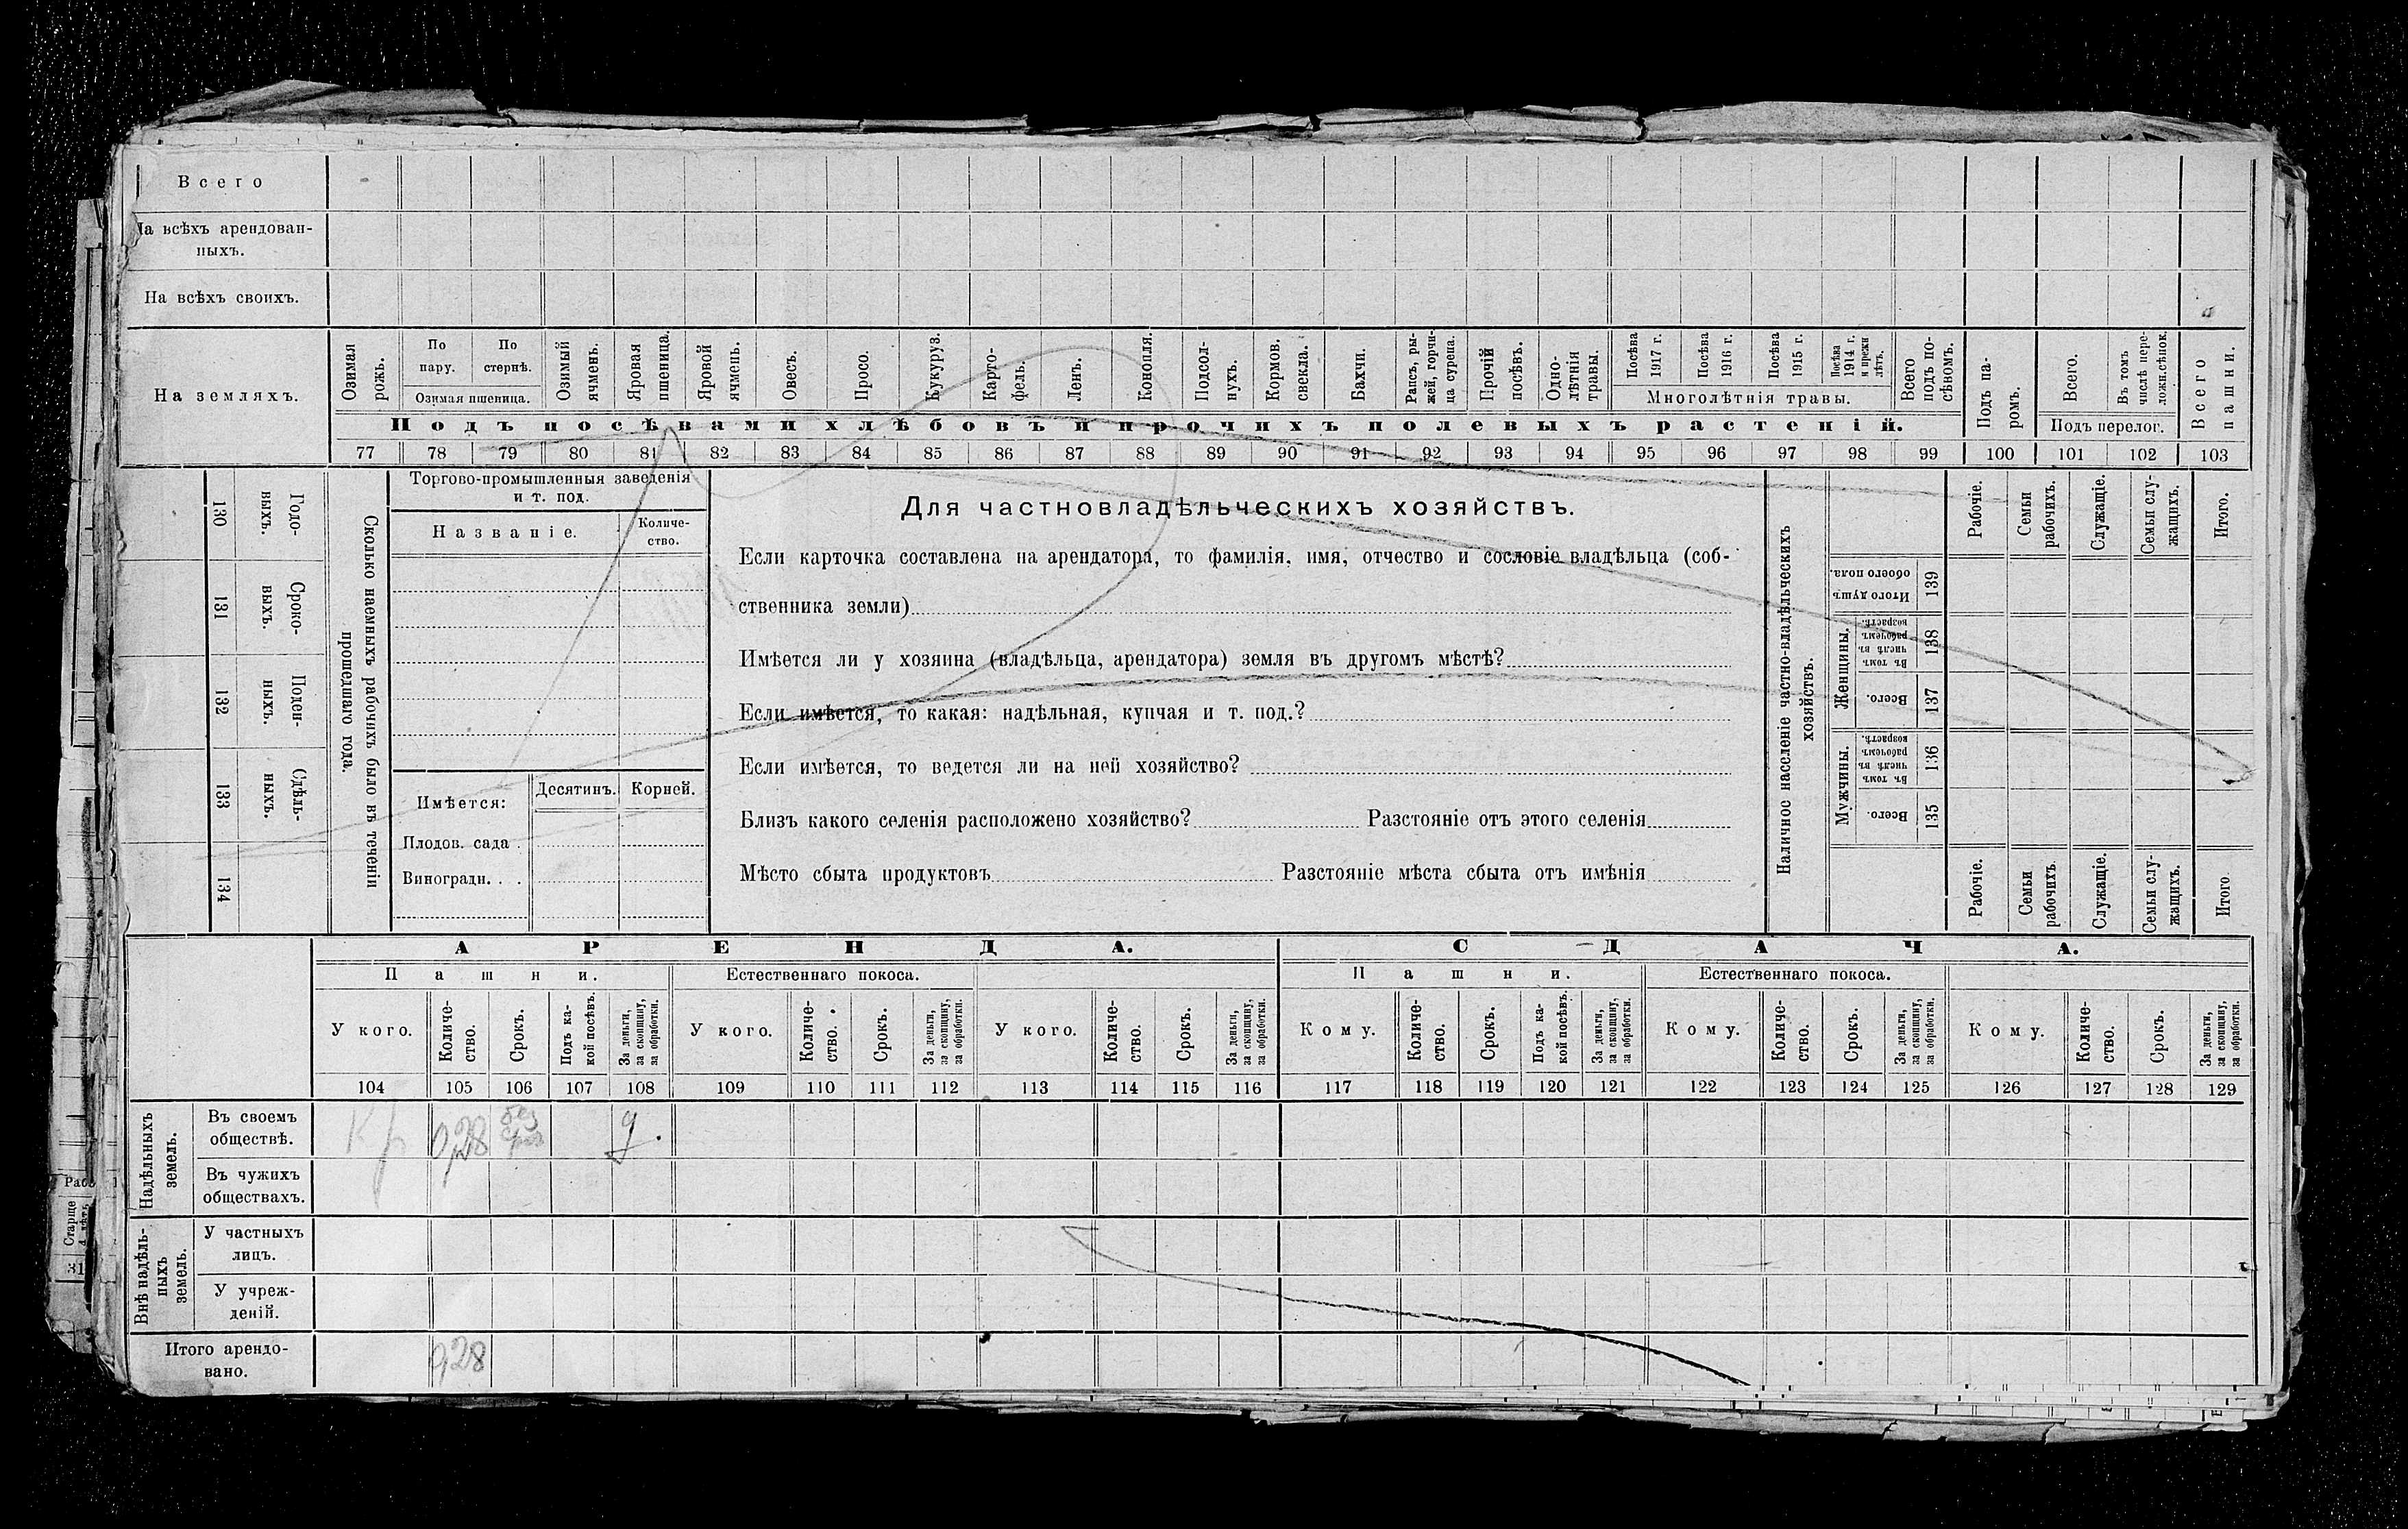 Всего
На всѣхъ арендован-
ныхъ.
На всѣхъ своихъ.
На земляхъ.
Озимая рожь.
По пару.
По стернѣ.
Озимая пшеница.
Озимый ячмень.
Яровая пшеница.
Яровой ячмень.
Овесъ.
Просо.
Кукуруз.
Карто-
фель.
Ленъ.
Конопля.
Подсол-
нухъ.
Кормов. свекла.
Бахчи.
Рапсъ, ры-
жей, горчи-
ца сурепа.
Прочій посѣвъ.
Одно-
лѣтнія травы.
Посѣва 1917 г.
Посѣва 1916 г.
Посѣва 1915 г.
Посѣва 1914 г. и прежн лѣтъ.
Многолѣтнія травы.
Всего подъ по-
сѣвомъ.
Подъ па-
ромъ.
Всего.
Въ томъ числѣ пере-
ложн.сѣнок.
Подъ перелог.
Всего пашни.
Подъ посѣвами хлѣбовъ и прочихъ полевыхъ растеній.
77 78 79 80 81 82 83 84 85 86 87 88 89 90 91 92 93 94 95 96 97 98 99 100 101 102 103
130 Годо-
выхъ.
131 Сроко-
выхъ.
132 Поден-
ныхъ.
133 Сдѣль-
ныхъ.
134
Сколько наемныхъ рабочихъ было въ теченіи
прошедшаго года.
Торгово-промышленныя заведенія
и т. под.
Названіе.
Количе-
ство.
Имѣется:
Десятинъ.
Корней.
Плодов. сада .
Виноградн. . .
Для частновладѣльческихъ хозяйствъ.
Если карточка составлена на арендатора, то фамилія, имя, отчество и сословіе владѣльца (соб-
ственника земли)
Имѣется ли у хозяина (владѣльца, арендатора) земля въ другомъ мѣстѣ?
Если имѣется, то какая: надѣльная, купчая и т. под.?
Если имѣется, то ведется ли на ней хозяйство?
Близъ какого селенія расположено хозяйство? Разстояніе отъ этого селенія
Мѣсто сбыта продуктовъ Разстояніе мѣста сбыта отъ имѣнія
Наличное населеніе частно-владѣльческихъ
хозяйствъ.
Рабочіе.
Семьи рабочихъ.
Служащіе.
Семьи слу-
жащихъ.
Итого.
Итого душъ обоего пола. 139
Женщины.
Въ томъ числѣ въ рабочемъ возрастѣ. 138
Всего. 137
Мужчины.
Въ томъ числѣ въ рабочемъ возрастѣ. 136
Всего. 135
Рабочіе.
Семьи рабочихъ
Служащіе.
Семьи слу-
жащихъ.
Итого
АРЕНДА.
СДАЧА.
Пашни.
Естественнаго покоса.
Пашни.
Естественнаго покоса.
У кого.
Количе-
ство.
Срокъ.
Подъ ка-
кой посѣвъ.
За деньги, за скопщину, за обработки.
У кого.
Количе-
ство.
Срокъ.
За деньги, за скопщину, за обработки.
У кого.
Количе-
ство.
Срокъ.
За деньги, за скопщину, за обработки.
Кому.
Количе-
ство.
Срокъ.
Подъ ка-
кой посѣвъ.
За деньги, за скопщину, за обработки.
Кому.
Количе-
ство.
Срокъ.
За деньги, за скопщину, за обработки.
Кому.
Количе-
ство.
Срокъ.
За деньги, за скопщину, за обработки.
104 105 106 107 108 109 110 111 112 113 114 115 116 117 118 119 120 121 122 123 124 125 126 127 128 129
Надѣльныхъ земель.
Въ своемъ
обществѣ.
Кр 0,28 без д.
Въ чужихъ
обществахъ.
Внѣ надѣль-
ныхъ земель.
У частныхъ
лицъ.
У учреж-
деній.
Итого арендо-
вано.
0,28
Старше
31